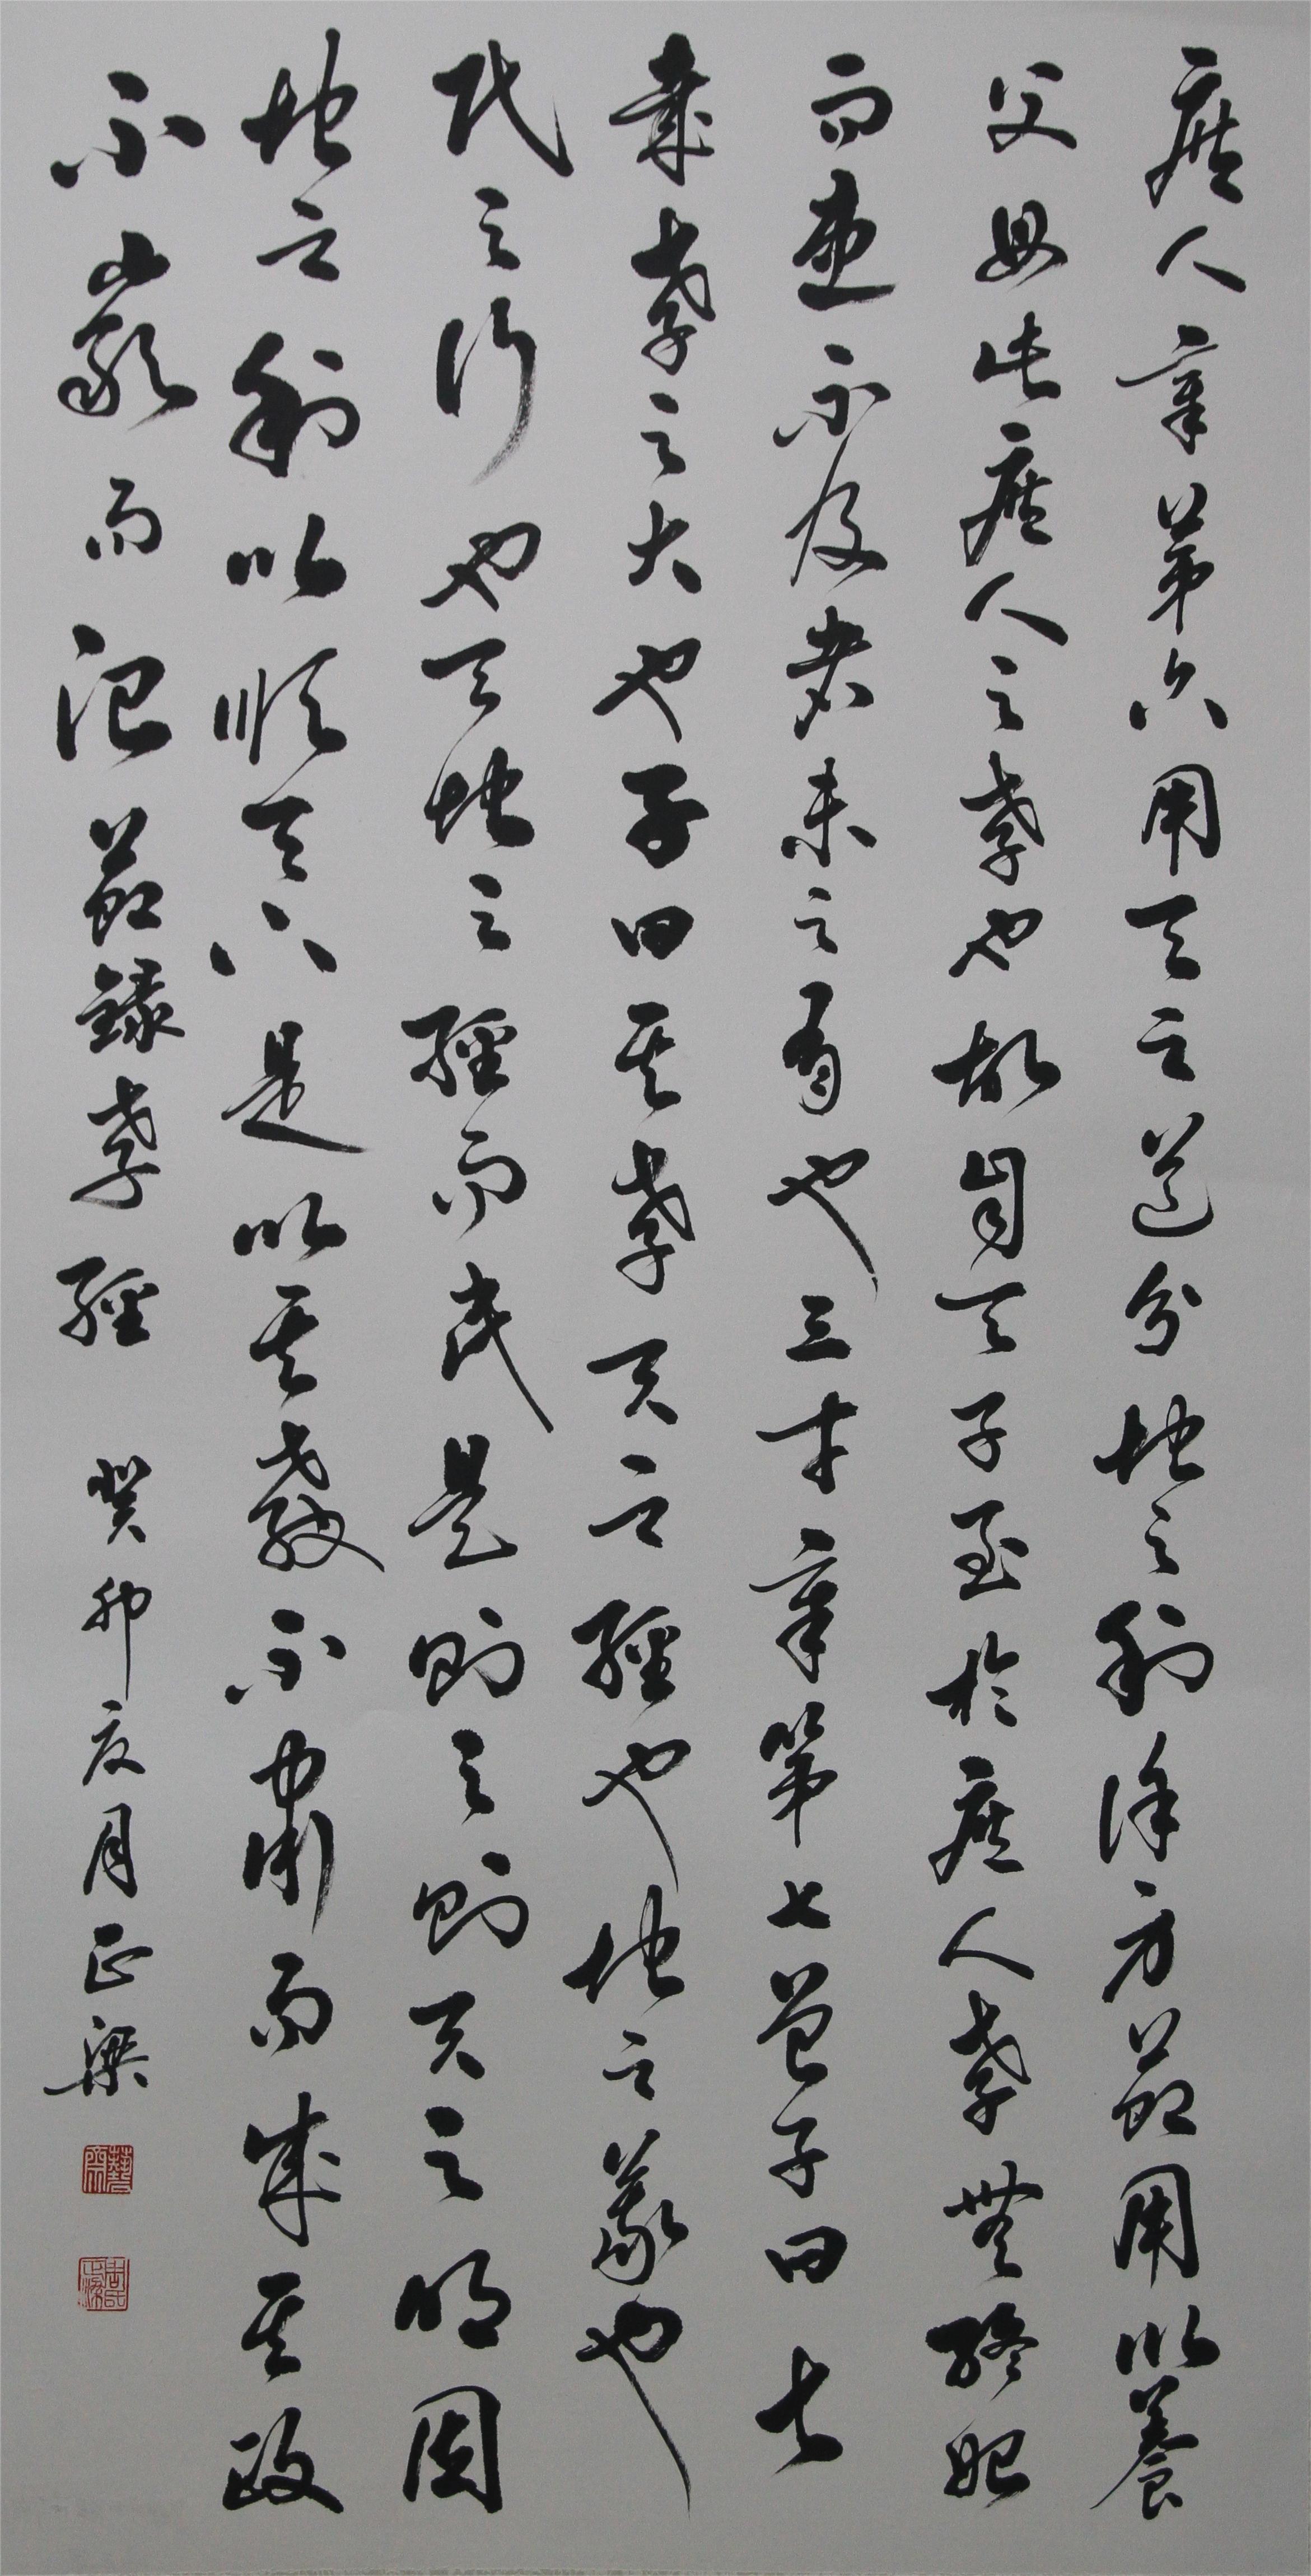 庶人章第六用天之道分地之利謹身節用以養
父母此庶人之孝也故自天子至於庶人孝無終始
而患不及者未之有也三才章第七曾子曰甚
哉孝之大也子曰夫孝天之經也地之義也
民之行也天地之經而民是則之則天之明因
地之利以順天下是以其教不肅而成其政
不嚴而治節錄孝經 癸卯夏月正梁